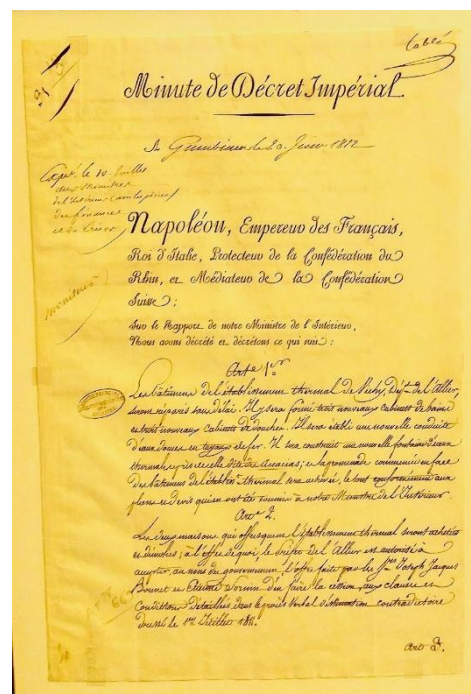 Minute de Décret Impérial
A Gumbinen le 20 Juin 1812
Napoléon, Empereur des Français,
Roi d'Italie, Protecteur de la Confédération du
Rhin, et Médiateur de la Confédération
Suisse;
Sur le Rapport de notre Ministre de l'Intérieur,
Nous avons décrété et décrétons ce qui suit:
Art. 1er
Les bâtimens de l'établissement thermal de Vichy, Dépt. de l'Allier,
seront réparés sans délai. Il y sera formé trois nouveaux cabinets de bains
et trois nouveaux cabinets de douches. Il sera établi une nouvelle conduite
d'eau douce en tuyaux de fer. Il sera construit une nouvelle fontaine d'eau
thermale près de celle dite des Acacias; et la promenade commencée en face
des bâtimens de l'établist. thermal sera achevée; le tout conformément aux
plans et devis qui en ont été soumis à notre Ministre de l'Intérieur.
Art. 2.
Les deux maisons qui offusquent l'établissement thermal seront achetées
et démolies; à l'effet de quoi, le Préfet de l'Allier est autorisé à
accepter, au nom du gouvernement l'offre faite par les Srs. Joseph Jacques
et Claude d'en faire la cession, aux clauses et
conditions détaillées dans le procès verbal d'estimation contradictoire
dressé le 1er Juillet 1811.
Art 3.